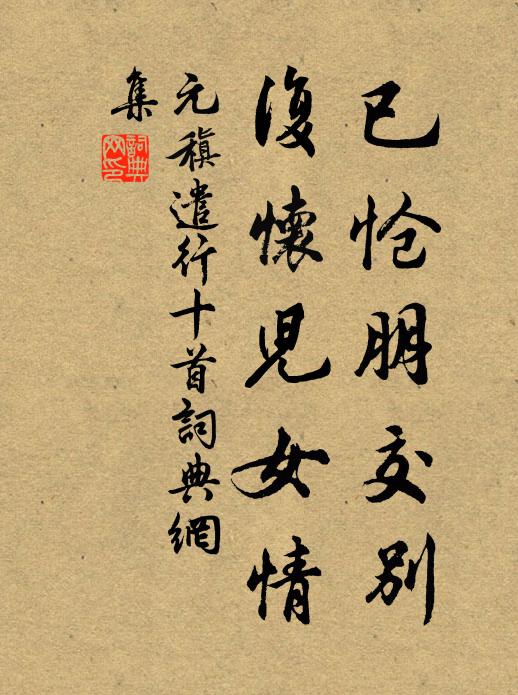 已怆朋交别
復懷児女情
元稹遣行十首詞典網
集
詞典
网印